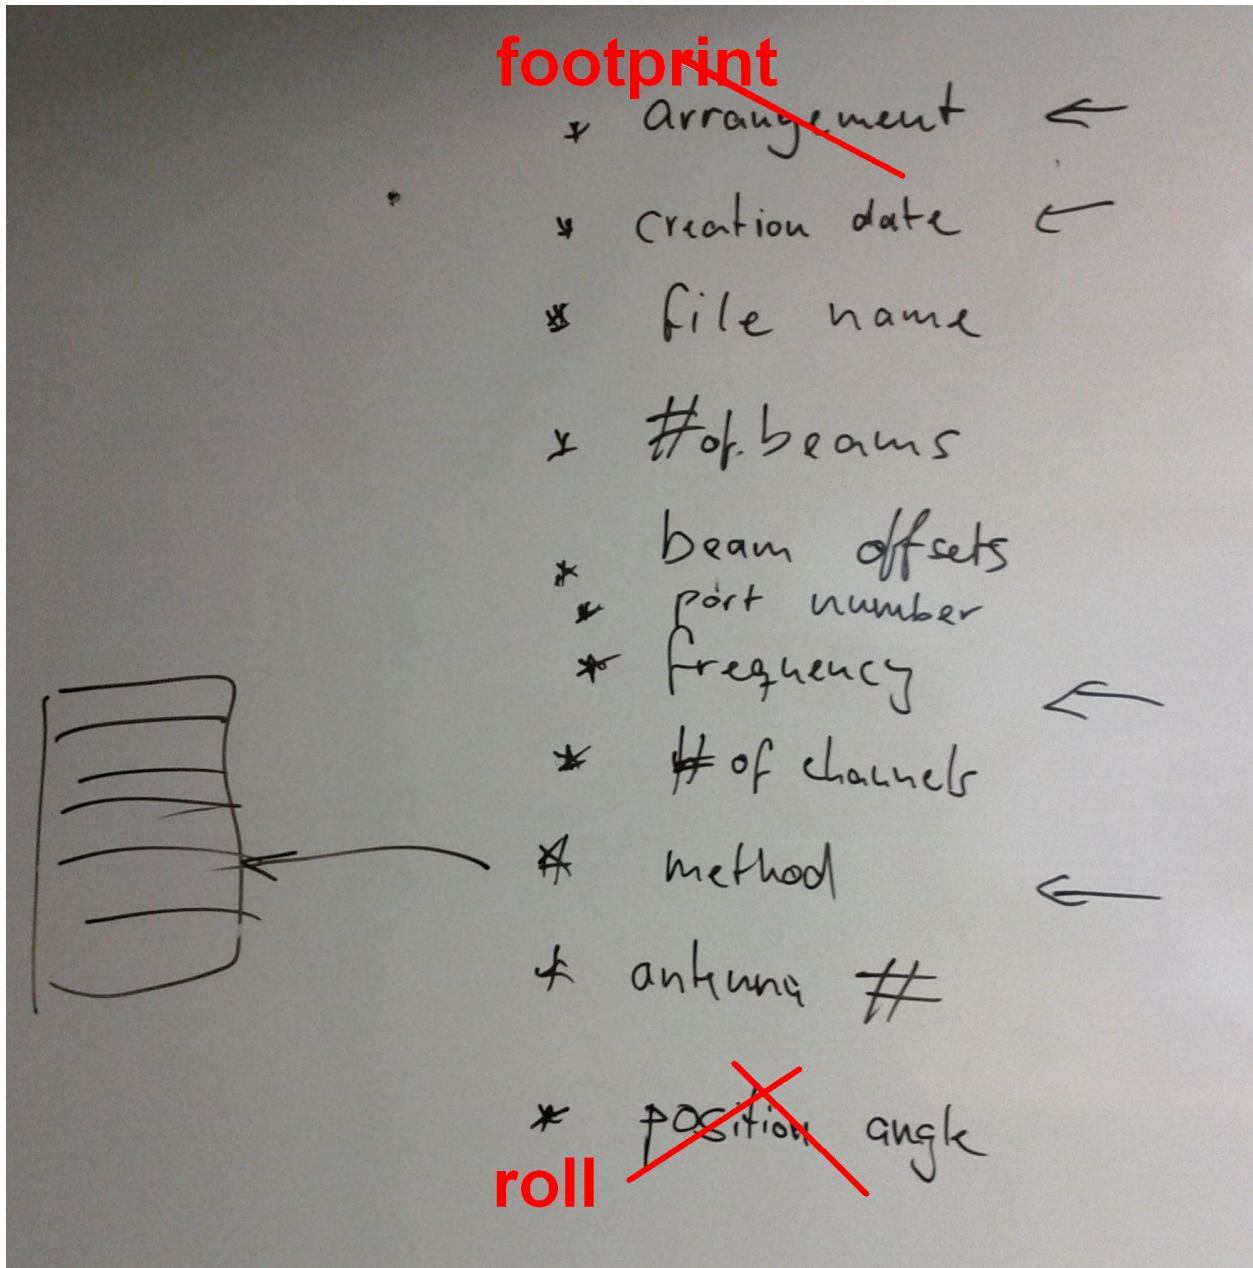 footprint
* arrangement ←
* creation date ←
* file name
* # of beams
* beam offsets
* port number
* frequency ←
* # of channels
* method ←
* antenna #
* position angle
roll